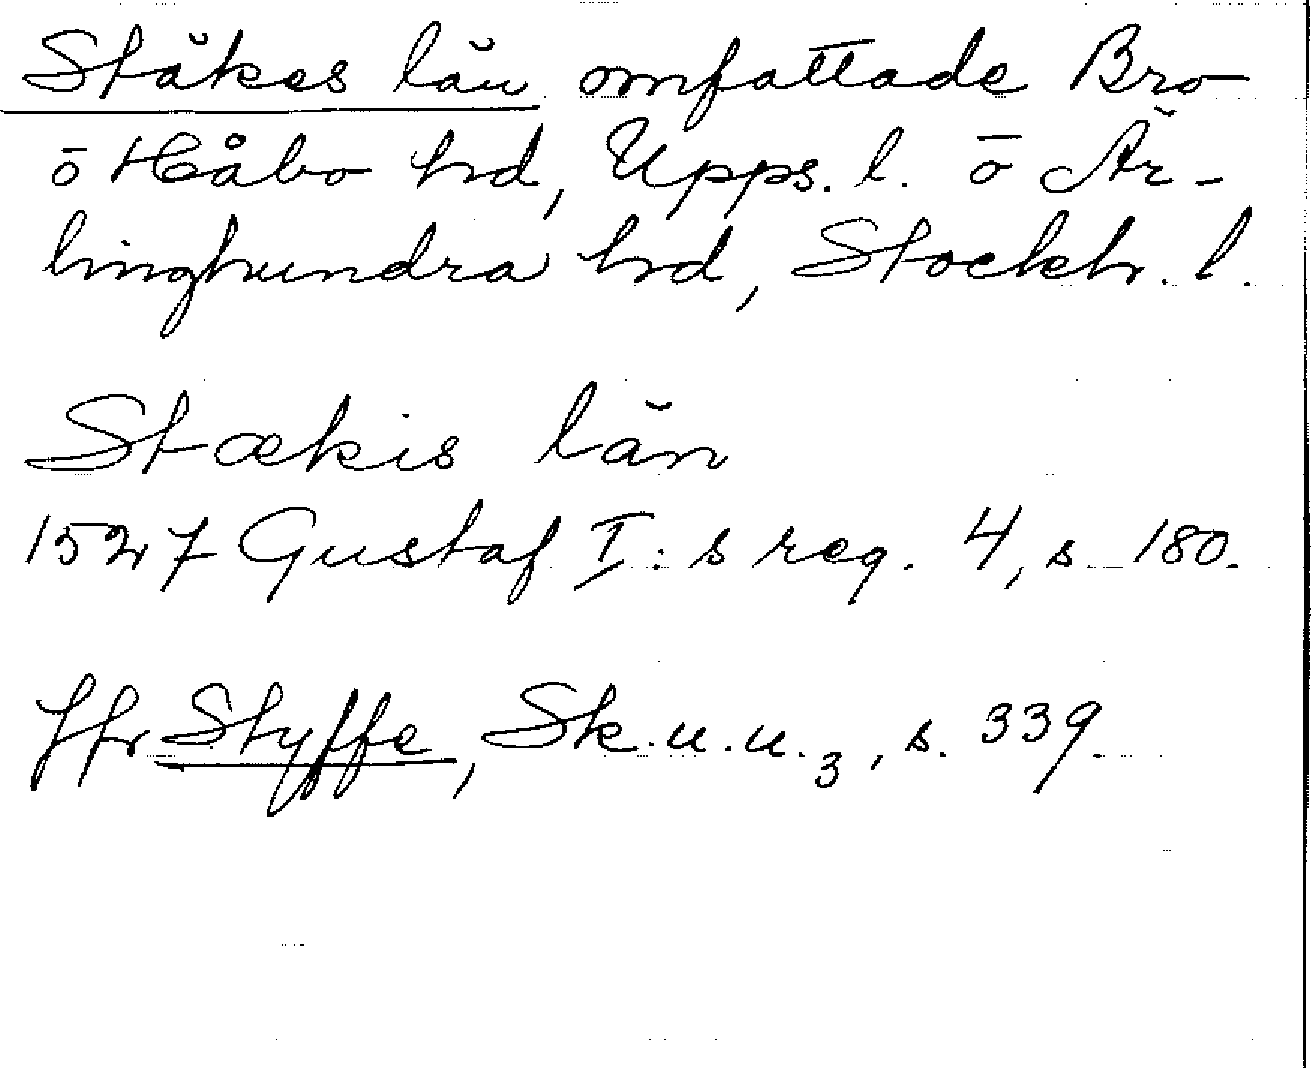 Stäkes län omfattade Bro
ō Håbo hd, Upps. l. ō Är-
linghundra hd, Stockh. l.
Stækis län
1527 Gustaf I:s reg. 4, s. 180.
Jfr Styffe, Sk.u.u.3, s. 339.